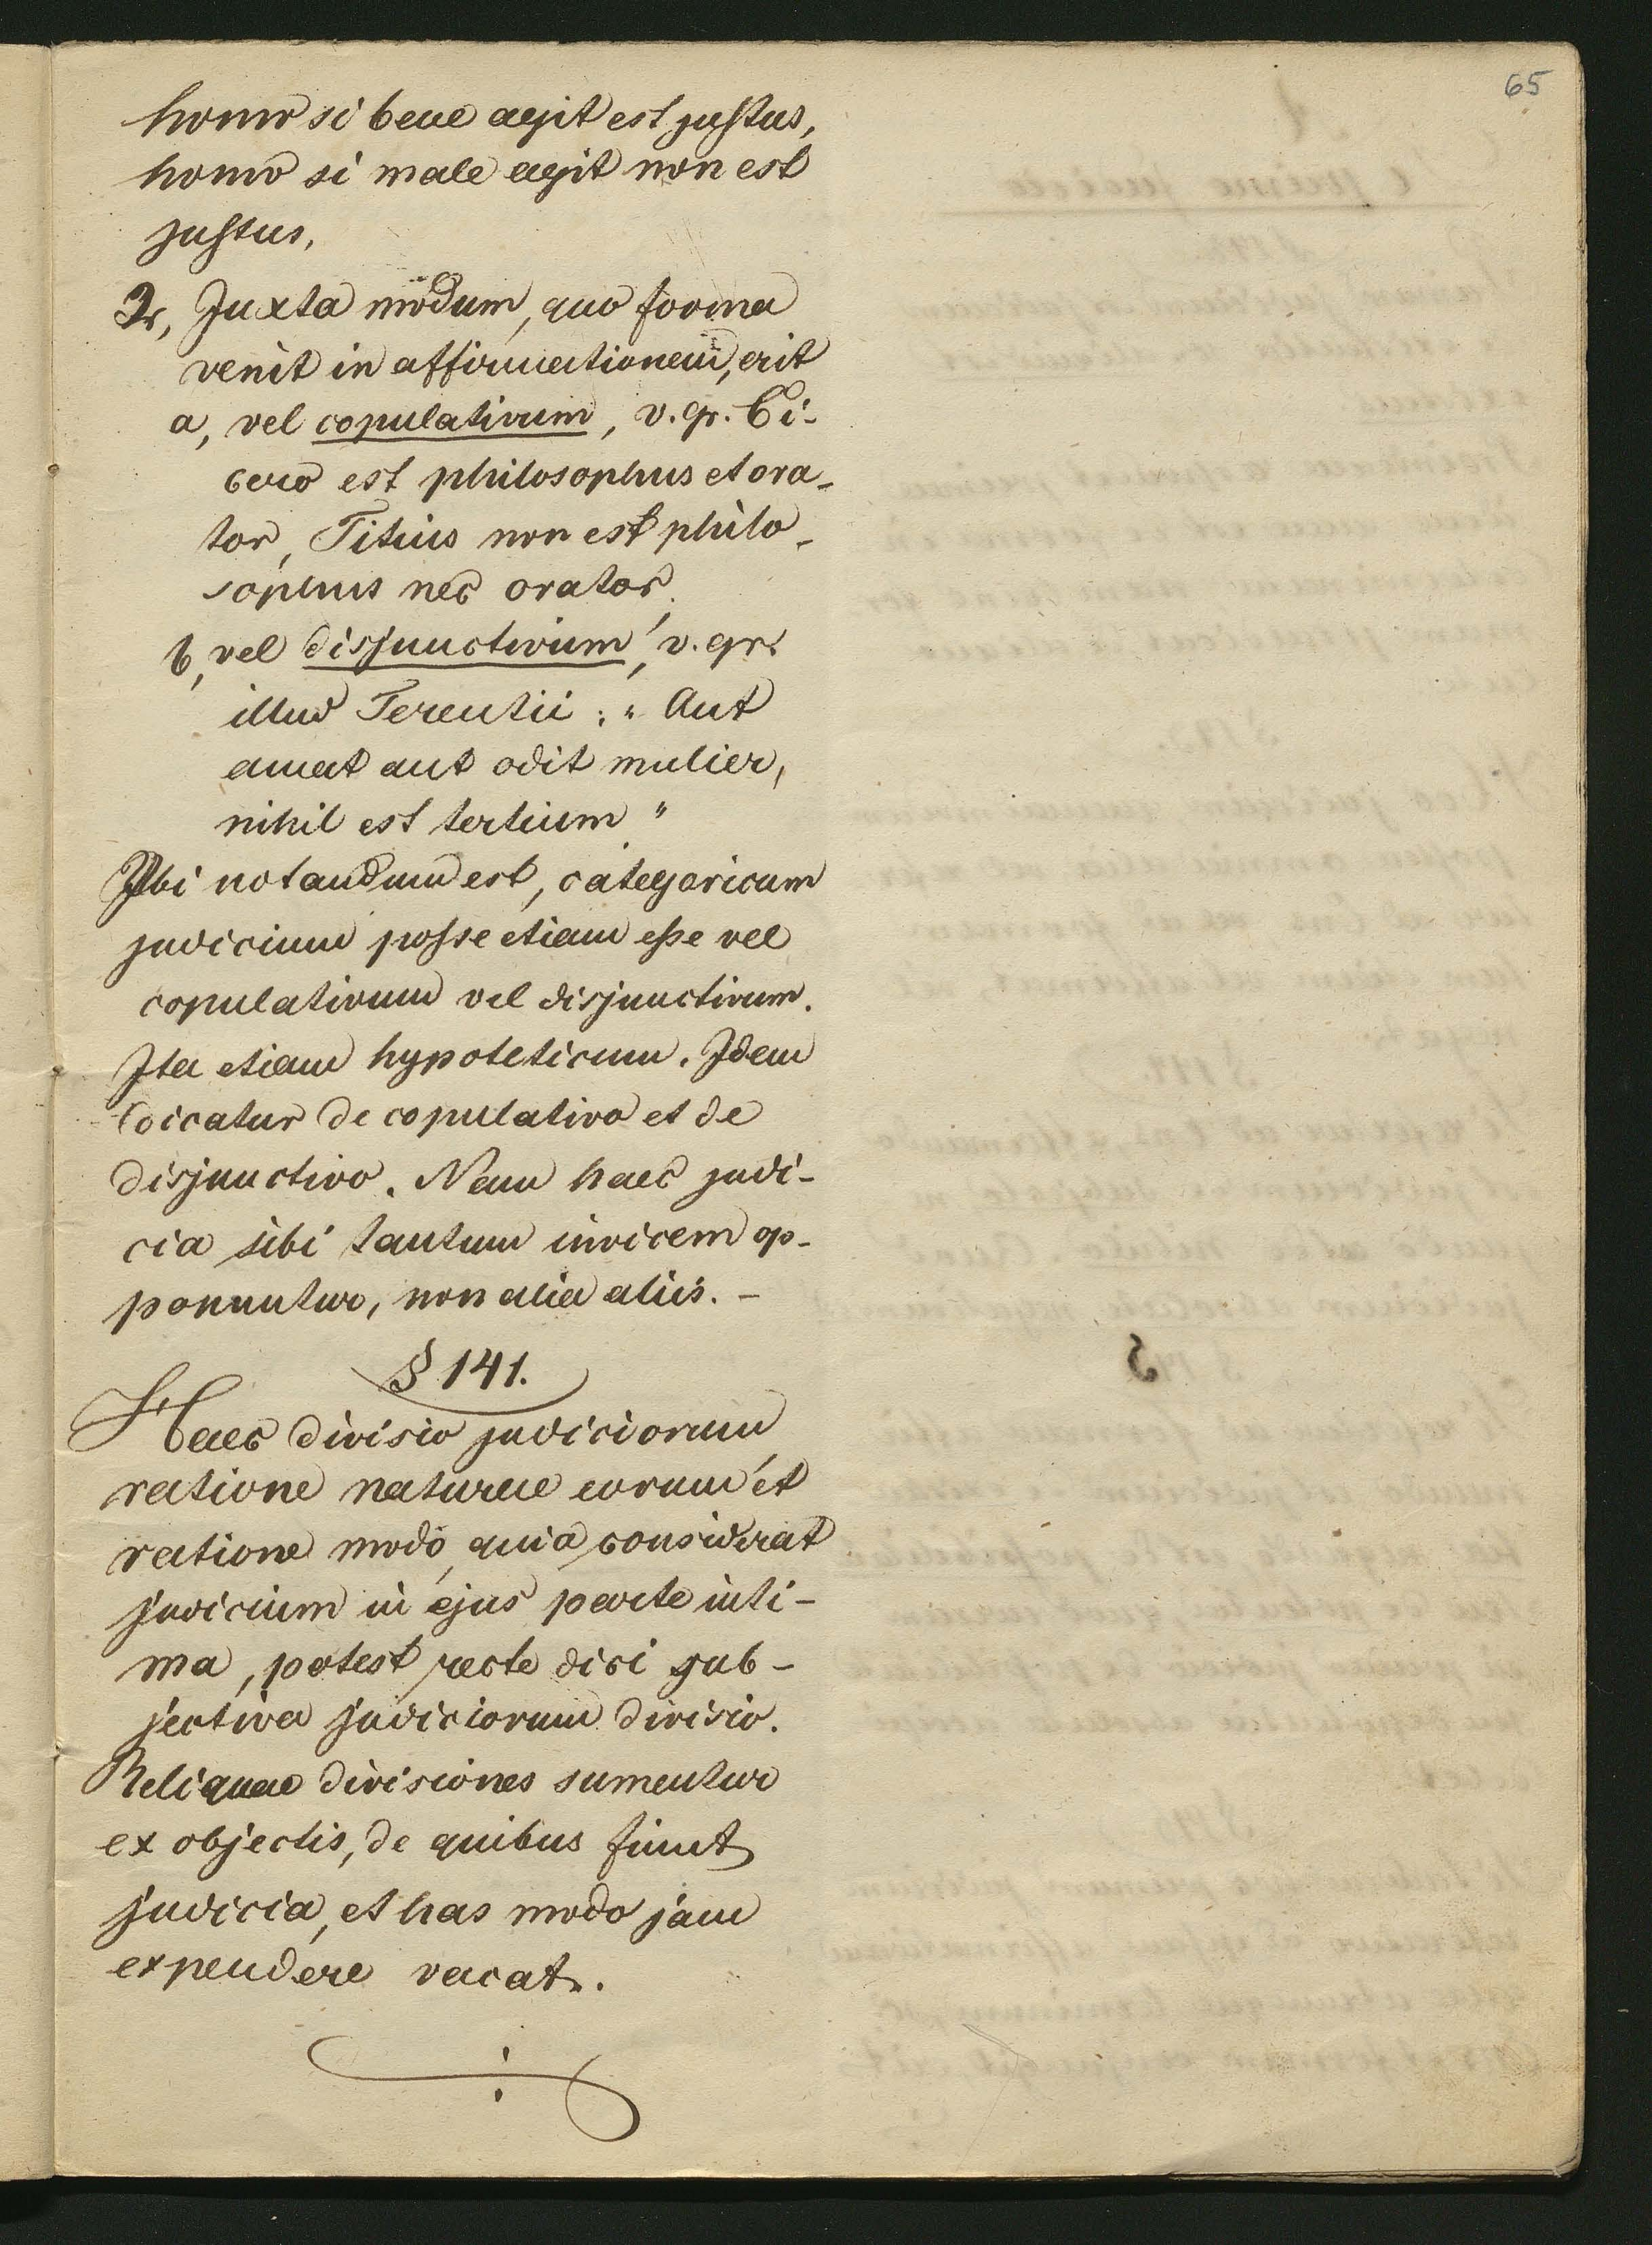 65
homo si bene agit est justus,
homo si male agit non est
justus,
2, Juxta modum, quo forma
venit in affirmationem, erit
a, vel copulativum, v. gr. Ci-
cero est philosophus et ora-
tor, Titius non est philo-
sophus nec orator,
b, vel disjunctivum, v. gr.
illud Terentii: "Aut
amat aut odit mulier,
nihil est tertium"
Ubi notandum est, categoricum
judicium posse etiam esse vel
copulativum vel disjunctivum.
Ita etiam hypoteticum. Idem
dicatur de copulativo et de
disjunctivo. Nam haec judi-
cia sibi tantum invicem op-
ponuntur, non alia aliis. -
§ 141.
Haec divisio judiciorum
ratione naturae eorum et
ratione modo, quia considerat
judicium in ejus parte inti-
ma, potest recte dici sub-
jectiva judiciorum divisio.
Reliquae divisiones sumentur
ex objectis, de quibus fiunt
judicia, et has modo jam
expendere vacat.